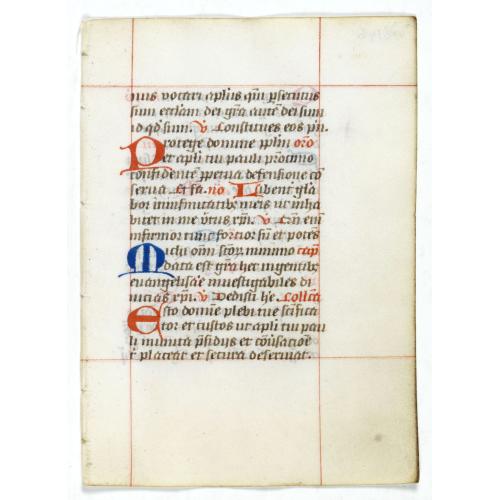 nus vocari aplus qm psecutus
sum eccliam dei gra aute dei sum
id qd sum. v Constitues eos pn.
Protege domine pplm oro
et apli tui pauli procinio
confidente ppetua defensione co
serua. no Libent gla
bor infirmitatib; meis ut inha
bitet in me virtus xpi. v Cum eni
infirmor tunc fortior su et potes
Michi omi scor minimo cap
data est gra hec in gentib;
euangelisare inuestigabiles di
uicias xpi. v Dedisti he. Collecta
Esto domine plebi tue scifica
tor et custos ut apli tui pau
li munita psidiis et couersatioe
t placeat et secura deseruiat.